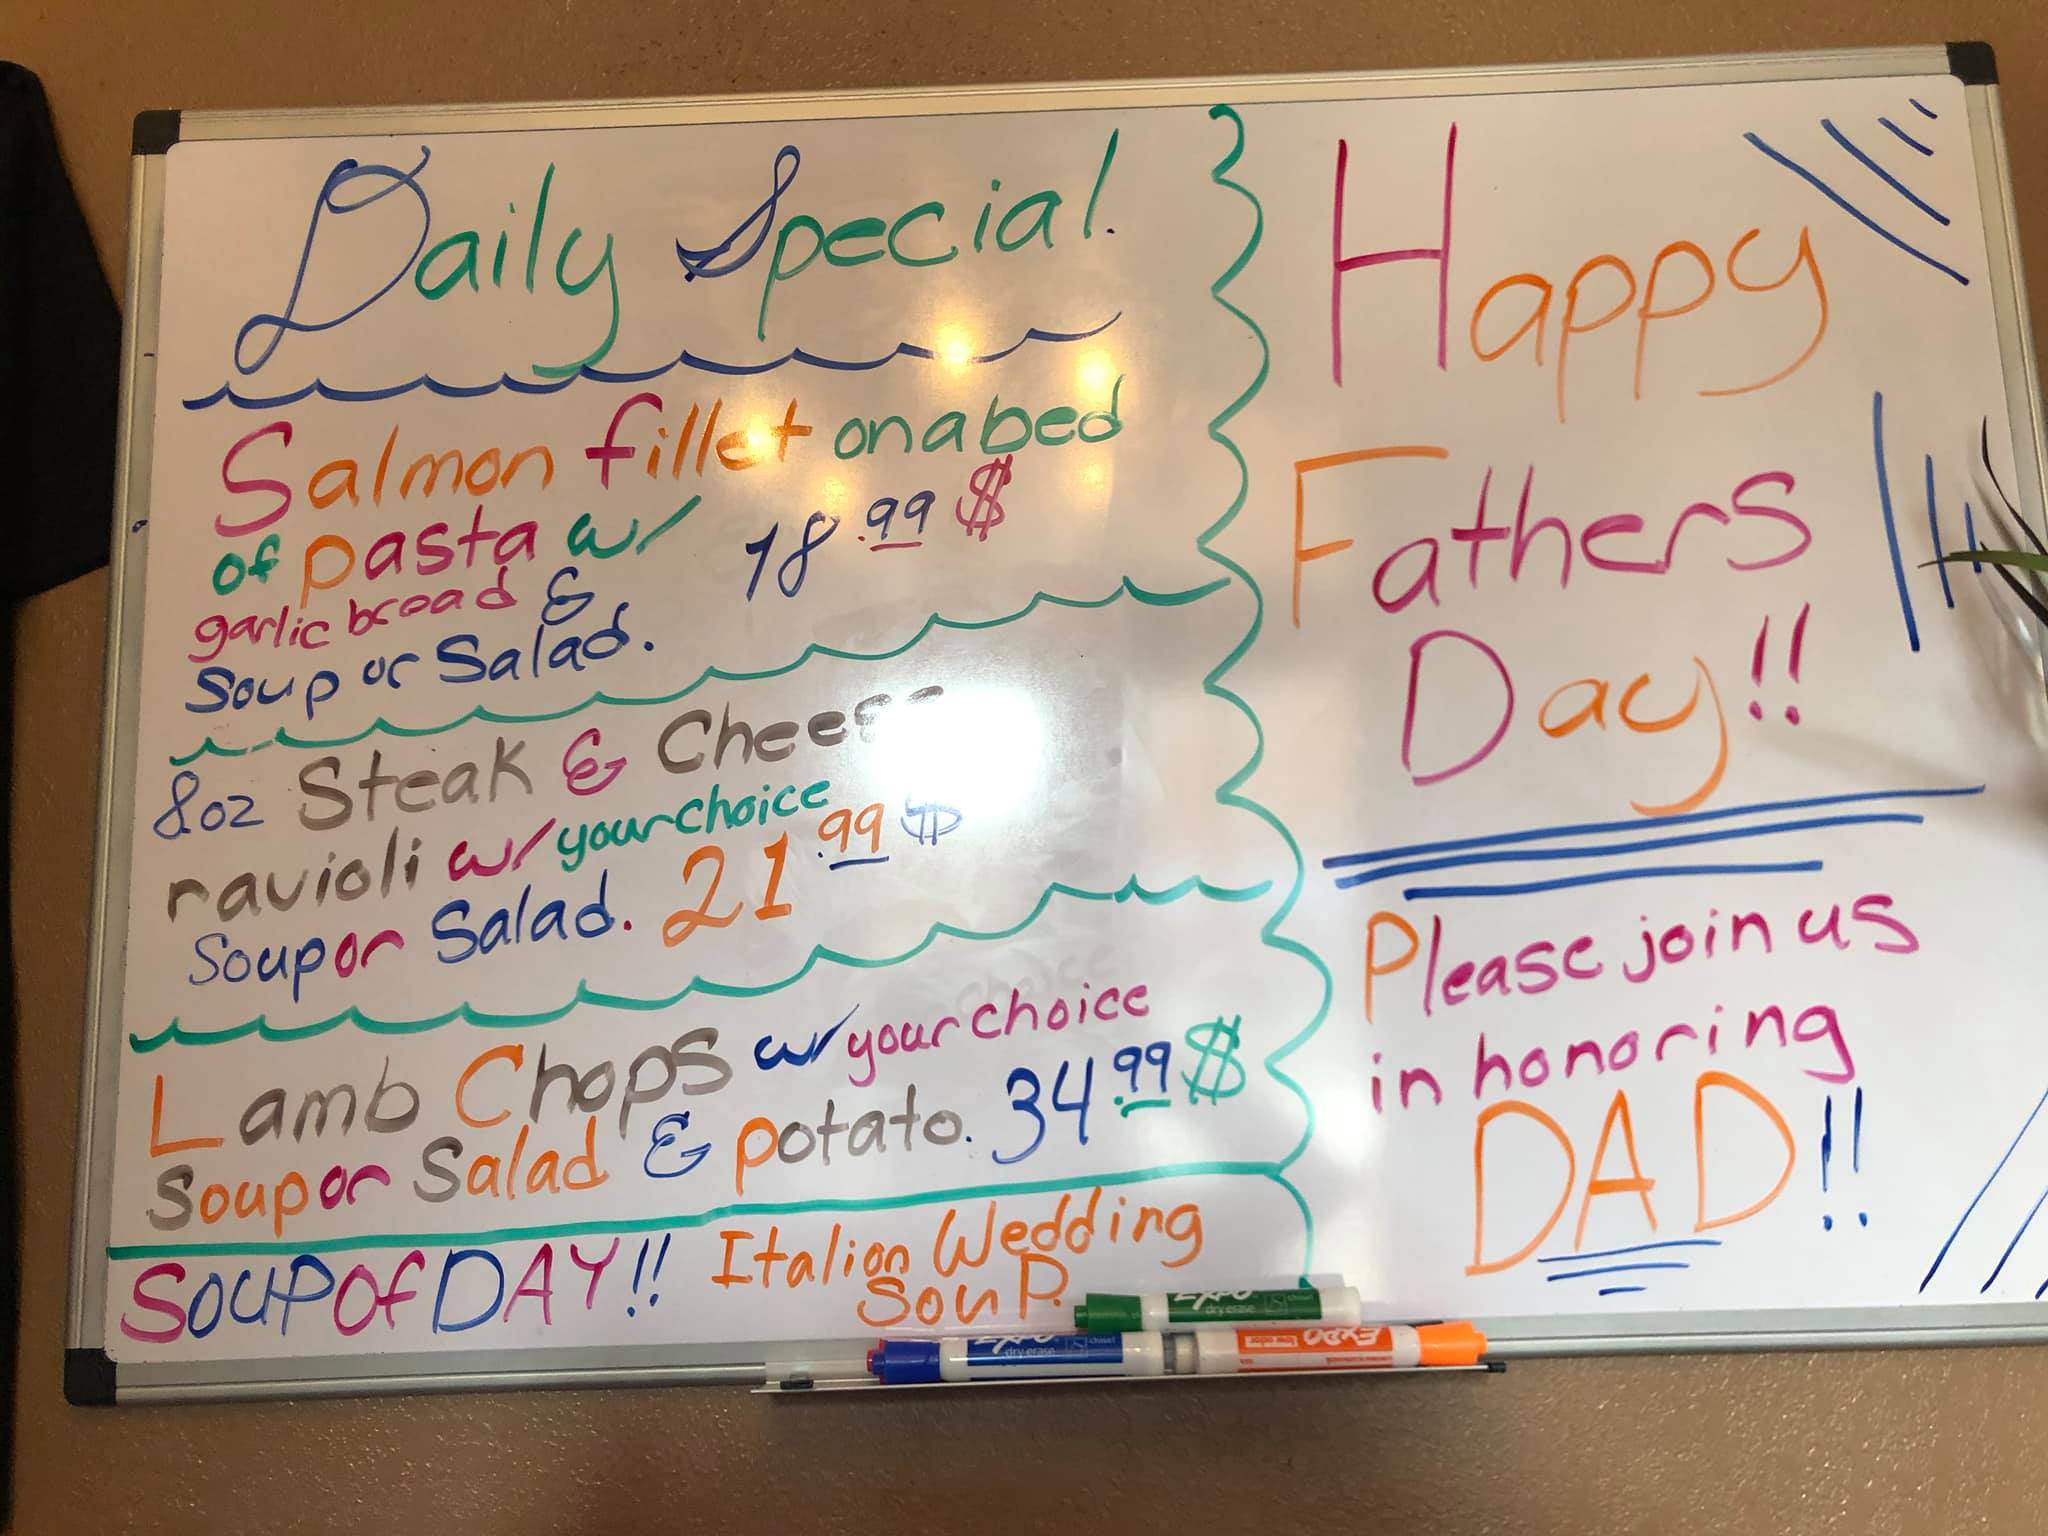 Daily Special.
Salmon fillet on a bed
of pasta w/ 18.99 $
garlic bread &
Soup or Salad.
8oz Steak & Cheese
ravioli w/ your choice
Soup or Salad. 21.99 $
Lamb Chops w/ your choice
Soup or Salad & potato. 34.99 $
SOUP OF DAY!! Italion Wedding
SOUP.
Happy
Fathers
Day!!
Please join us
in honoring
DAD!!
EXPO
dry erase
EXPO
dry erase
EXPO